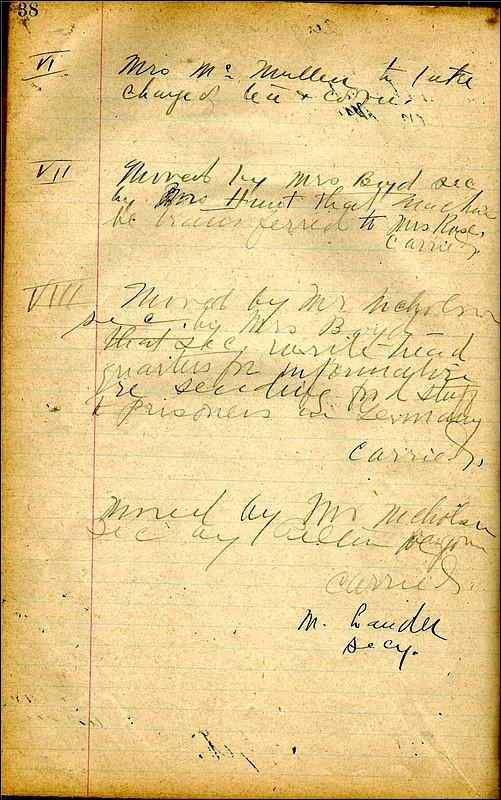 38
VI Mrs Mc Mullen to take
charge of tea & coffee.
VII Moved by Mrs Boyd sec
by Mrs Hunt that machine
be transferred to Mrs Rose.
Carried,
VIII Moved by Mr Nicholson
sec. by Mrs Boyd
that sec, write head
quarters for information
re sending for stuff
& prisoners in Germany
Carried,
Moved by Mr Nicholson
Sec by
Carried.
M. Lauder
Secy.